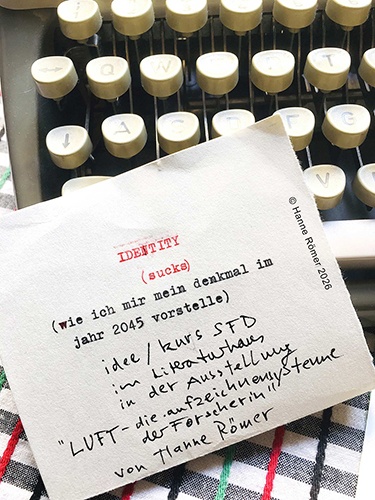 IDENTITY
(sucks)
(wie ich mir mein denkmal im
jahr 2045 vorstelle)
idee / kurs SFD
im Literaturhaus
in der Ausstellung
"LUFT - die aufzeichnensysteme
der Forscherin"
von Hanne Römer
© Hanne Römer 2026